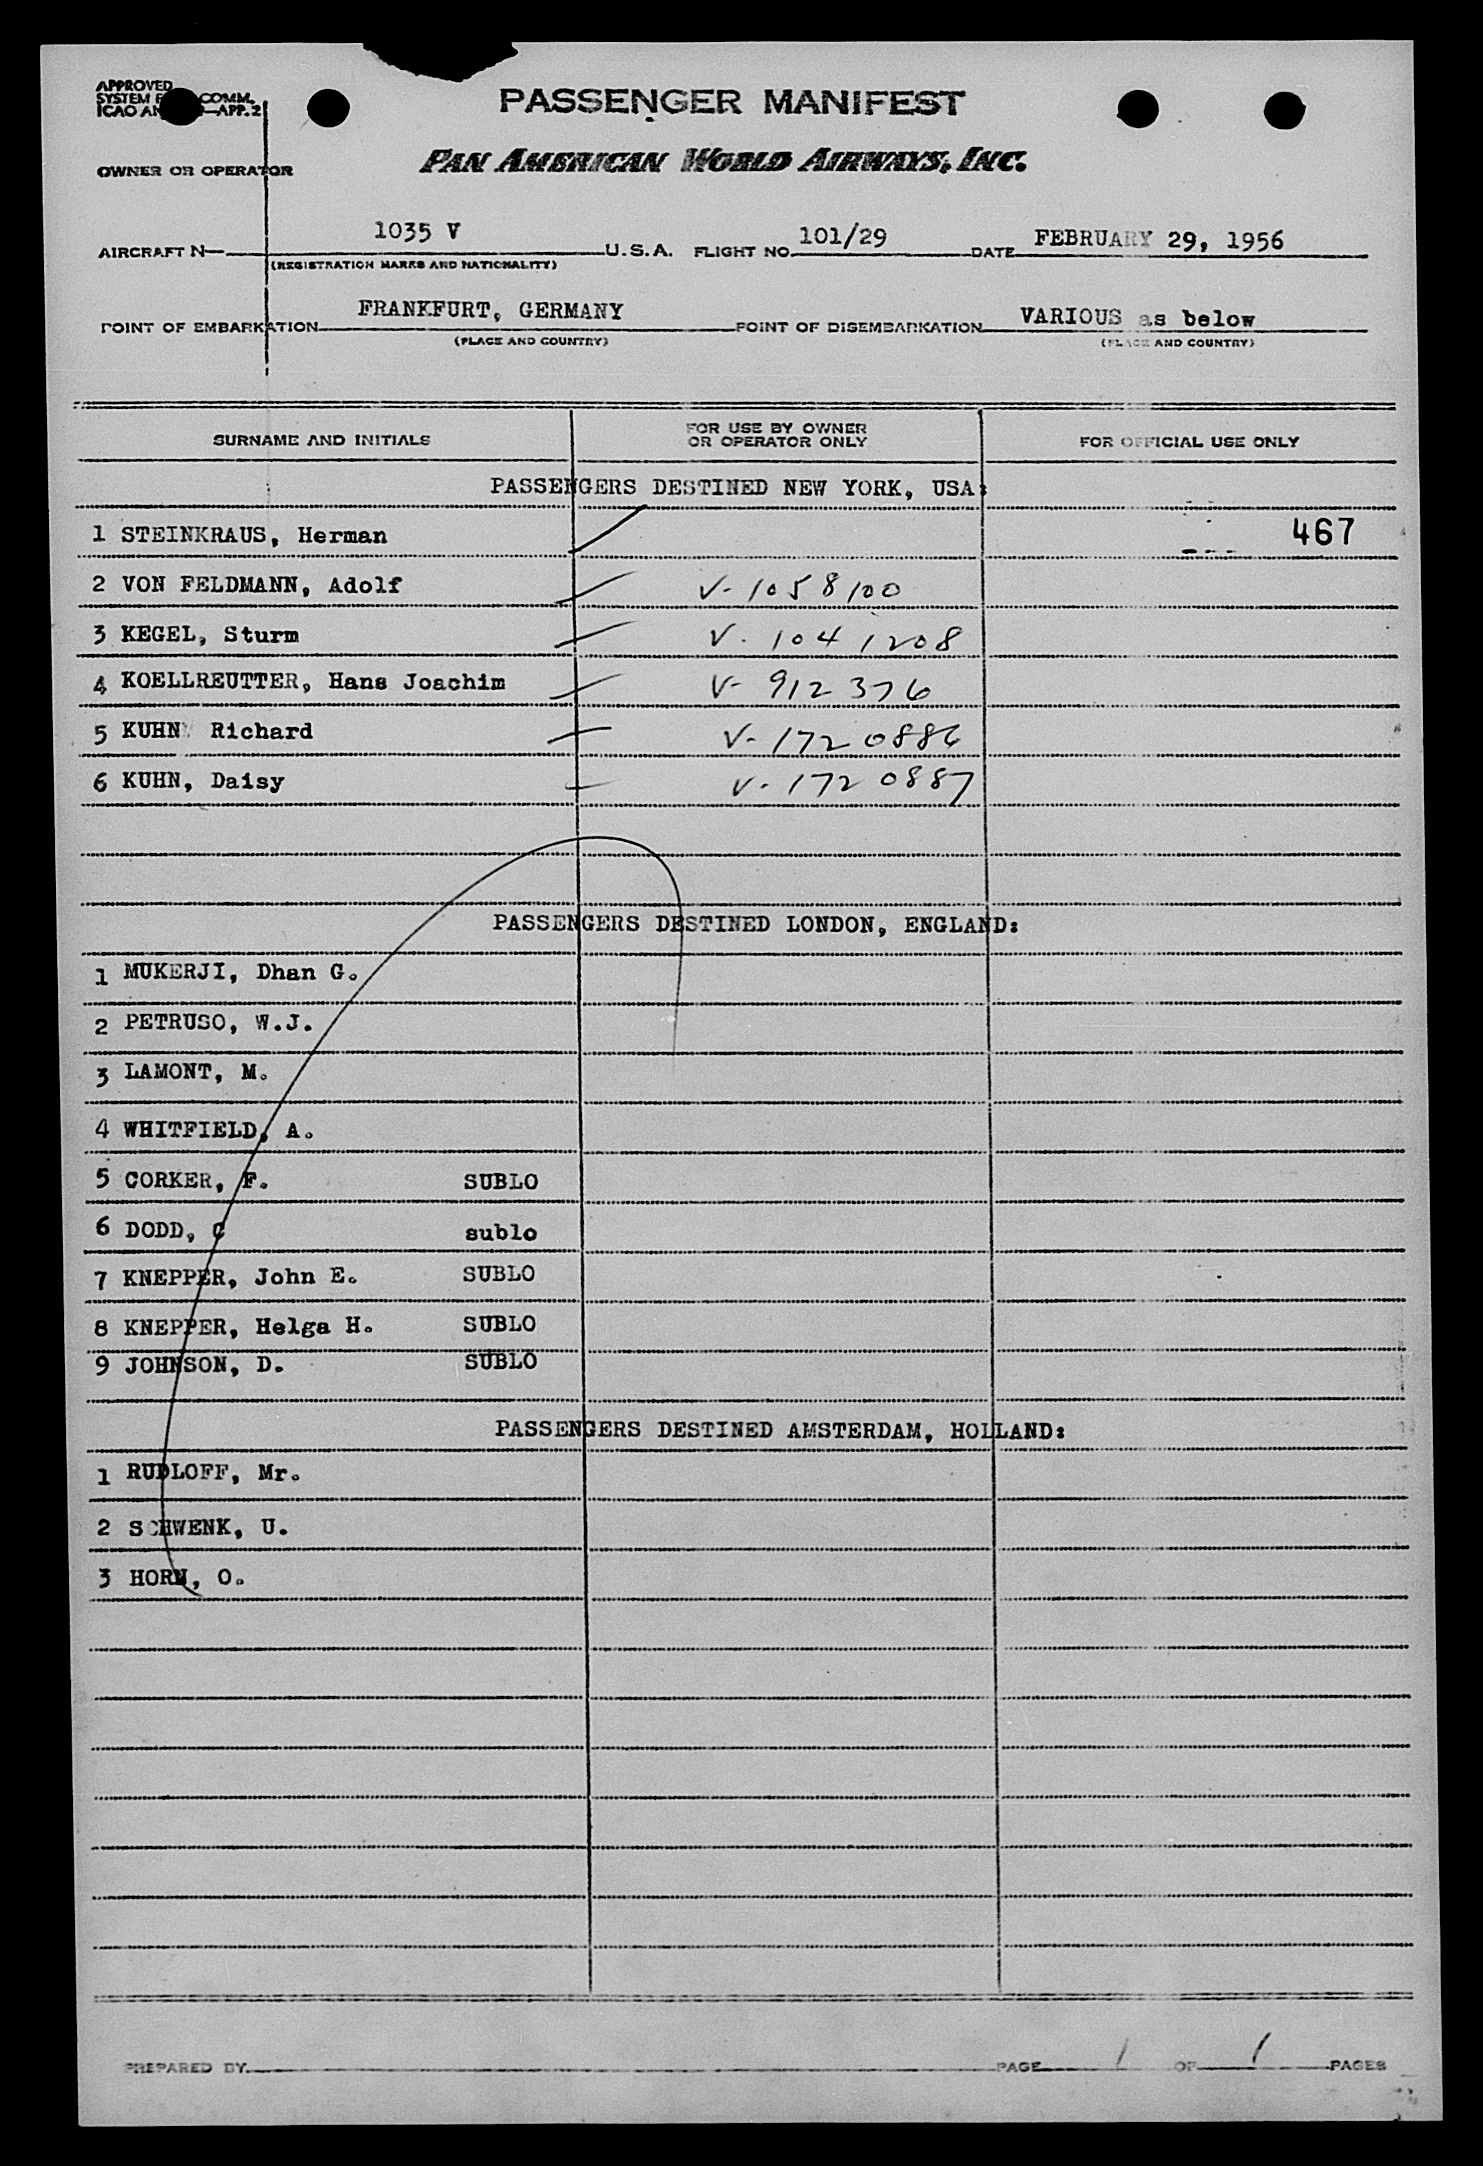 APPROVED
SYSTEM COMM.
ICAO APP.2
PASSENGER MANIFEST
OWNER OR OPERATOR
PAN AMERICAN WORLD AIRWAYS, INC.
AIRCRAFT N— 1035 V U.S.A. FLIGHT NO. 101/29 DATE FEBRUARY 29, 1956
(REGISTRATION MARKS AND NATIONALITY)
POINT OF EMBARKATION FRANKFURT, GERMANY POINT OF DISEMBARKATION VARIOUS as below
(PLACE AND COUNTRY) (PLACE AND COUNTRY)
SURNAME AND INITIALS FOR USE BY OWNER OR OPERATOR ONLY FOR OFFICIAL USE ONLY
PASSENGERS DESTINED NEW YORK, USA:
1 STEINKRAUS, Herman 467
2 VON FELDMANN, Adolf V-1058100
3 KEGEL, Sturm V. 1041208
4 KOELLREUTTER, Hans Joachim V-912376
5 KUHN Richard V-1720886
6 KUHN, Daisy V-1720887
PASSENGERS DESTINED LONDON, ENGLAND:
1 MUKERJI, Dhan G.
2 PETRUSO, W.J.
3 LAMONT, M.
4 WHITFIELD, A.
5 CORKER, F. SUBLO
6 DODD, C sublo
7 KNEPPER, John E. SUBLO
8 KNEPPER, Helga H. SUBLO
9 JOHNSON, D. SUBLO
PASSENGERS DESTINED AMSTERDAM, HOLLAND:
1 RUDLOFF, Mr.
2 SCHWENK, U.
3 HORN, O.
PREPARED BY PAGE 1 OF 1 PAGES